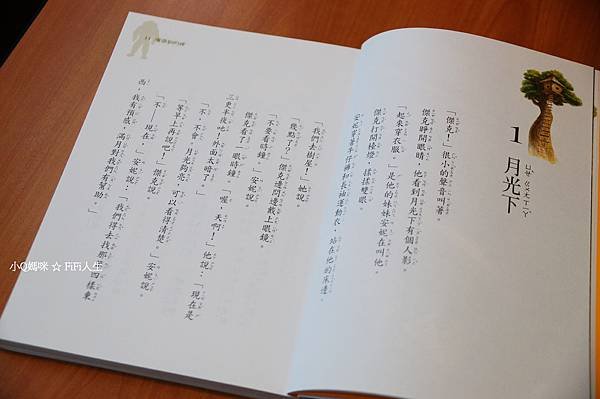 1 月光下
「傑克!」很小的聲音叫著。
傑克睜開眼睛,他看到月光下有個人影。
「起來穿衣服。」是他的妹妹安妮在叫他。
傑克打開檯燈,揉揉雙眼。
安妮穿著牛仔褲和長袖運動衣,站在他的床邊。
「我們去樹屋!」她說。
「幾點了?」傑克邊問邊戴上眼鏡。
「不要看時鐘。」安妮說。
傑克看了一眼時鐘。「喔,天啊!」他說:「現在是
三更半夜吔!外面太暗了。」
「不,不會,月光夠亮,可以看得清楚。」安妮說。
「等早上再說吧!」傑克說。
「不——現在,」安妮說:「我們得去找那 四樣東
西,我有預感,滿月對我們有幫助。」
11
小Q媽咪 ☆ FiFi人生